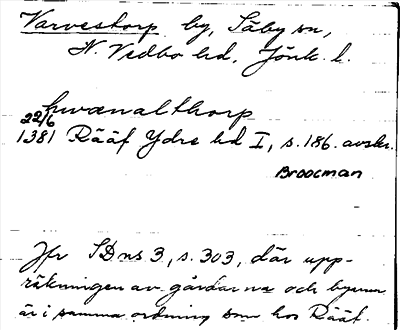 Varvestorp by, Säby sn,
N. Vedbo hd, Jönk. l.
hwænalthorp
22/6
1381 Rääf Ydre hd I, s. 186. avskr.
Broocman
Jfr SDns 3, s. 303, där upp-
räkningen av gårdarna och byarna
är i samma ordning som hos Rääf.